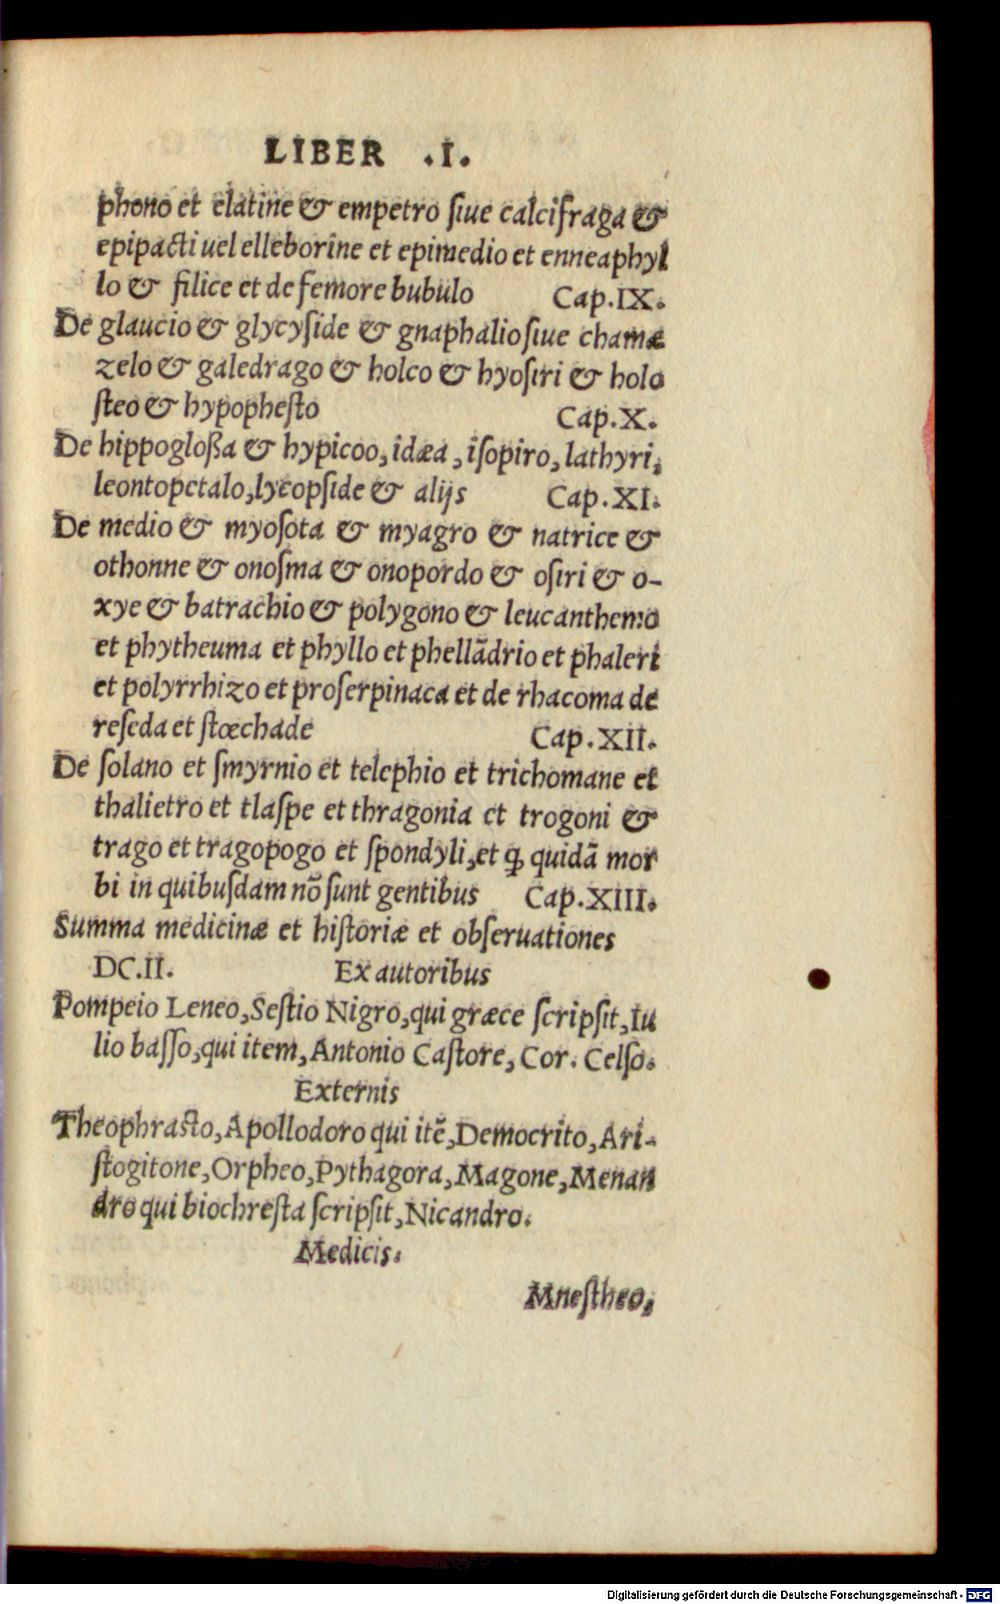 LIBER .I.
phono et elatine & empetro ſiue calcifraga &
epipacti uel elleborine et epimedio et enneaphyl
lo & filice et de femore bubulo Cap.IX.
De glaucio & glycyſide & gnaphalio ſiue chamæ
zelo & galedrago & holco & hyoſiri & holo
ſteo & hypopheſto Cap.X.
De hippogloßa & hypicoo, idæa, iſopiro, lathyri,
leontopetalo, lycopſide & alijs Cap.XI.
De medio & myoſota & myagro & natrice &
othonne & onoſma & onopordo & oſiri & o-
xye & batrachio & polygono & leucanthemo
et phytheuma et phyllo et phellādrio et phaleri
et polyrrhizo et proſerpinaca et de rhacoma de
reſeda et ſtœchade Cap.XII.
De ſolano et ſmyrnio et telephio et trichomane et
thalietro et tlaſpe et thragonia et trogoni &
trago et tragopogo et ſpondyli, et ꝙ quidā mor
bi in quibuſdam nō ſunt gentibus Cap.XIII.
Summa medicinæ et hiſtoriæ et obſeruationes
DC.II. Ex autoribus
Pompeio Leneo, Seſtio Nigro, qui græce ſcripſit, Iu
lio baſſo, qui item, Antonio Caſtore, Cor. Celſo.
Externis
Theophraſto, Apollodoro qui itē, Democrito, Ari-
ſtogitone, Orpheo, Pythagora, Magone, Menan
dro qui biochreſta ſcripſit, Nicandro.
Medicis.
Mneſtheo,
Digitalisierung gefördert durch die Deutsche Forschungsgemeinschaft - DFG